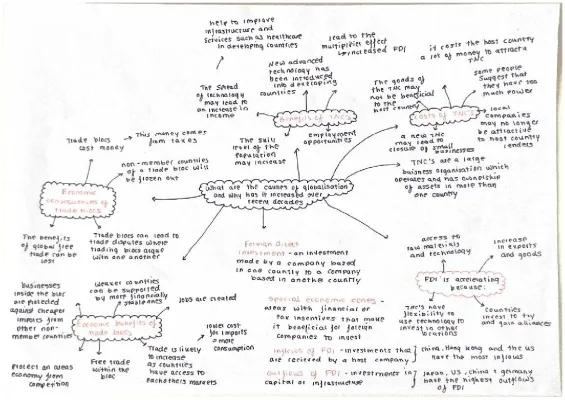 help to improve
infrastructure and
services such as healthcare
in developing countries
lead to the
multiplier effect
increased FDI
it costs the host country
a lot of money to attract a
TNC
New advanced
technology has
been introduced
into developing
countries
The spread
of technology
may lead to
an increase in
income
The goods of
the TNC may
not be beneficial
to the host
country
some people
suggest that
they have too
much power
Benefits of TNC's
Costs of TNC's
local
companies
may no longer
be attractive
to host country
lenders
The skill
level of the
population
may increase
employment
opportunities
a new TNC
may lead to
closure of small
businesses
TNC's are a large
business organisation which
operates and has ownership
of assets in more than
one country
Trade blocs
cost money
This money comes
from taxes
non-member countries
of a trade bloc will
be frozen out
Economic
consequences of
trade blocs
What are the causes of globalisation
and why has it increased over
recent decades
The benefits
of global free
trade can be
lost
Trade blocs can lead to
trade disputes where
trading blocs argue
with one another
Foreign Direct
Investment - an investment
made by a company based
in one country to a company
based in another country
access to
raw materials
and technology
increase
in exports
and goods
FDI is accelerating
because:
TNC's have
flexibility to
use technology to
invest in other
locations
Countries
invest to try
and gain alliances
businesses
inside the bloc
are protected
against cheaper
imports from
other non-
member countries
weaker countries
can be supported
by more financially
stable ones
Jobs are created
Economic Benefits of
trade blocs
lower cost
for imports
= more
consumption
Protect an areas
economy from
competition
Free trade
within the
bloc
Trade is likely
to increase
as countries
have access to
eachothers markets
Special economic zones -
areas with financial or
tax incentives that make
it beneficial for foreign
companies to invest
Inflows of FDI - investments that
are recieved by a host company
China, Hong Kong and the US
have the most inflows
Outflows of FDI - investments in
capital or infrastructure
Japan, US, China & Germany
have the highest outflows
of FDI